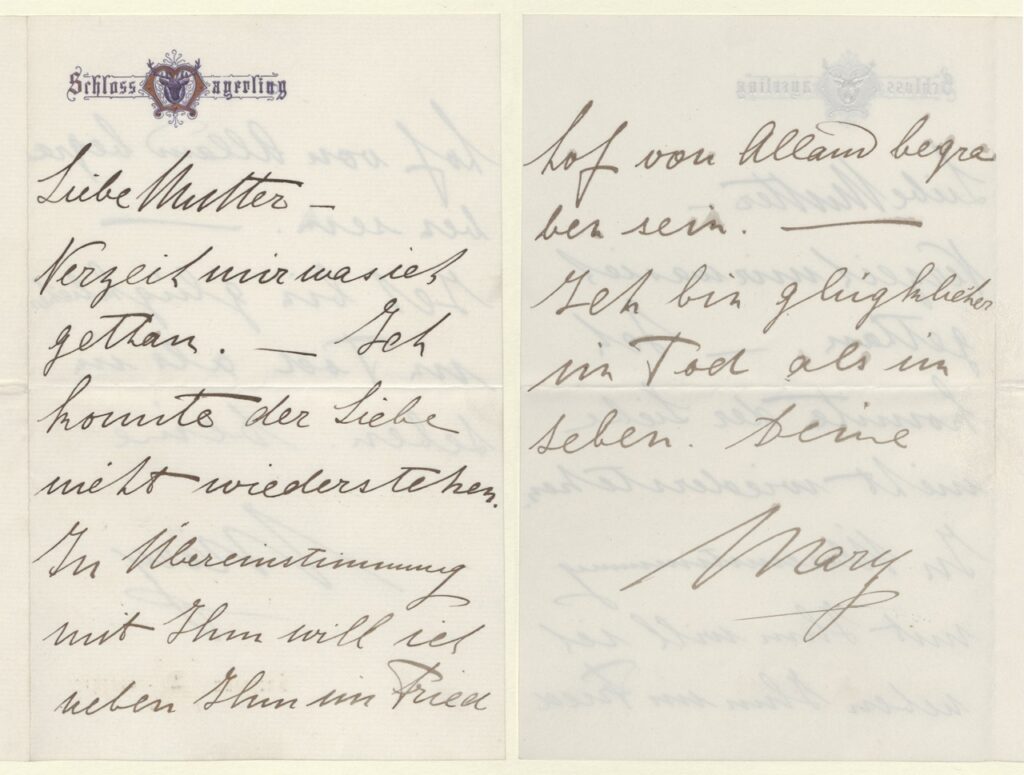 Schloss Mayerling
Liebe Mutter –
Verzeit mir was ich
gethan. — Ich
konnte der Liebe
nicht wiederstehen.
In Übereinstimmung
mit Ihm will ich
neben Ihm im Fried
hof von Alland begra
ben sein. —
Ich bin glügklicher
im Tod als im
Leben. Deine
Mary